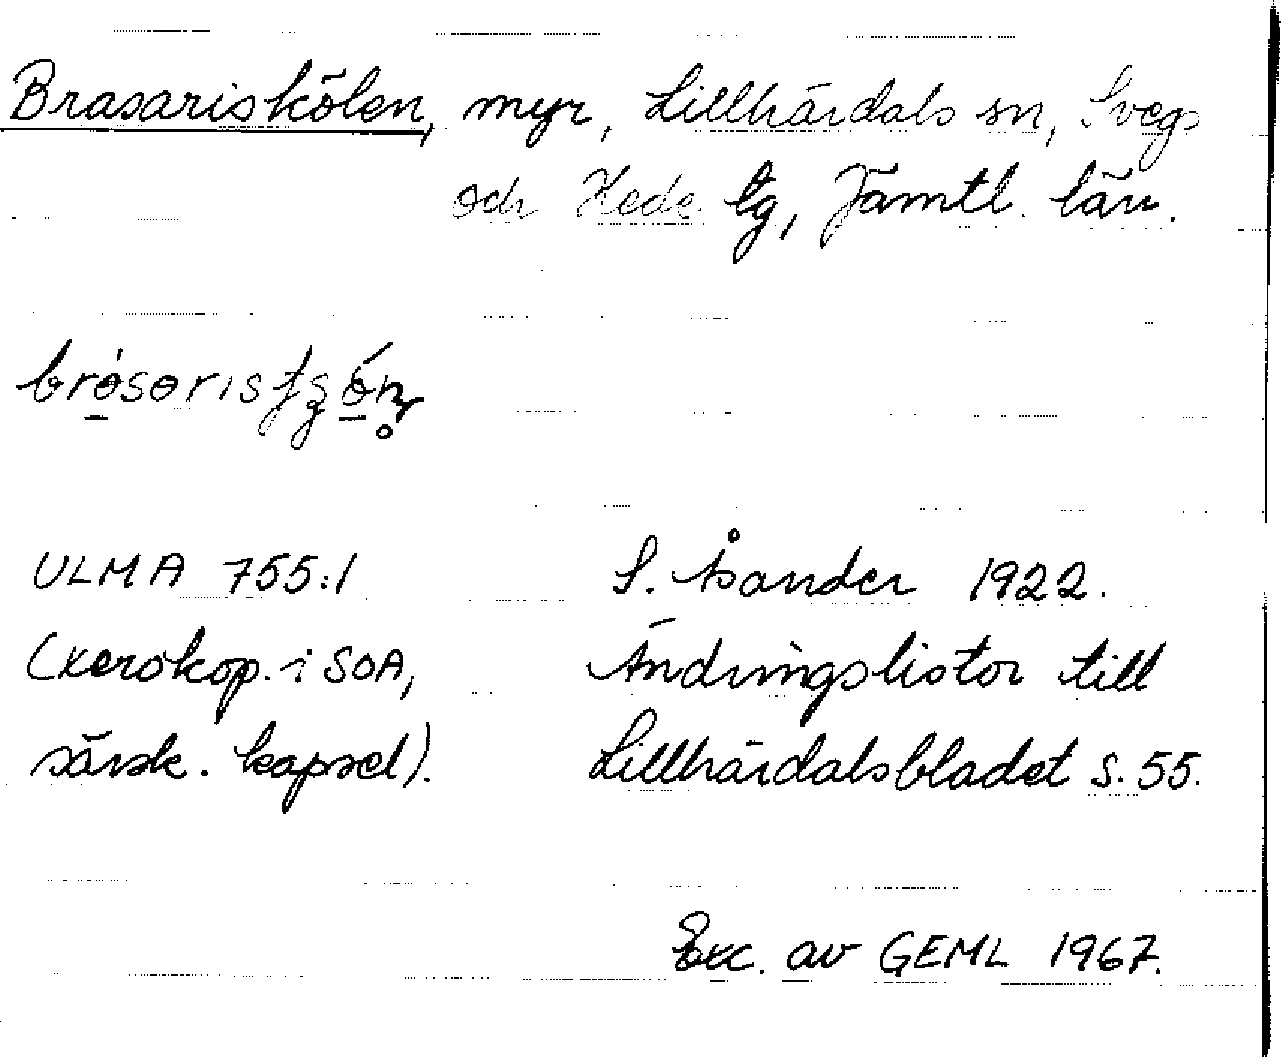 Brasariskölen, myr, Lillhärdals sn, Svegs
och Hede tg, Jämtl. län.
ULMA 755:1
(xerokop. i SOA,
särsk. kapsel).
S. Åsander 1922.
Ändringslistor till
Lillhärdalsbladet s. 55.
Exc. av GEML 1967.